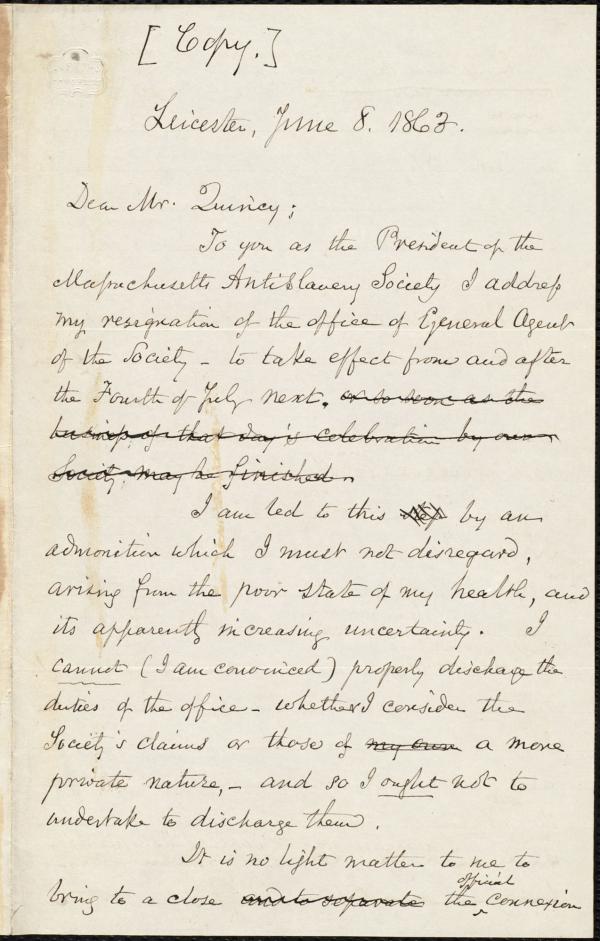 [Copy.]
Leicester, June 8. 1863.
Dear Mr. Quincy;
To you as the President of the
Massachusetts AntiSlavery Society I address
my resignation of the office of General Agent
of the Society – to take effect from and after
the Fourth of July next. or so soon as the
business of that day's celebration by our
Society may be finished.
I am led to this step by an
admonition which I must not disregard,
arising from the poor state of my health, and
its apparently increasing uncertainty. I
cannot (I am convinced) properly discharge the
duties of the office – whether I consider the
Society's claims or those of my own a more
private nature, – and so I ought not to
undertake to discharge them.
It is no light matter to me to
official
bring to a close and to separate the connexion